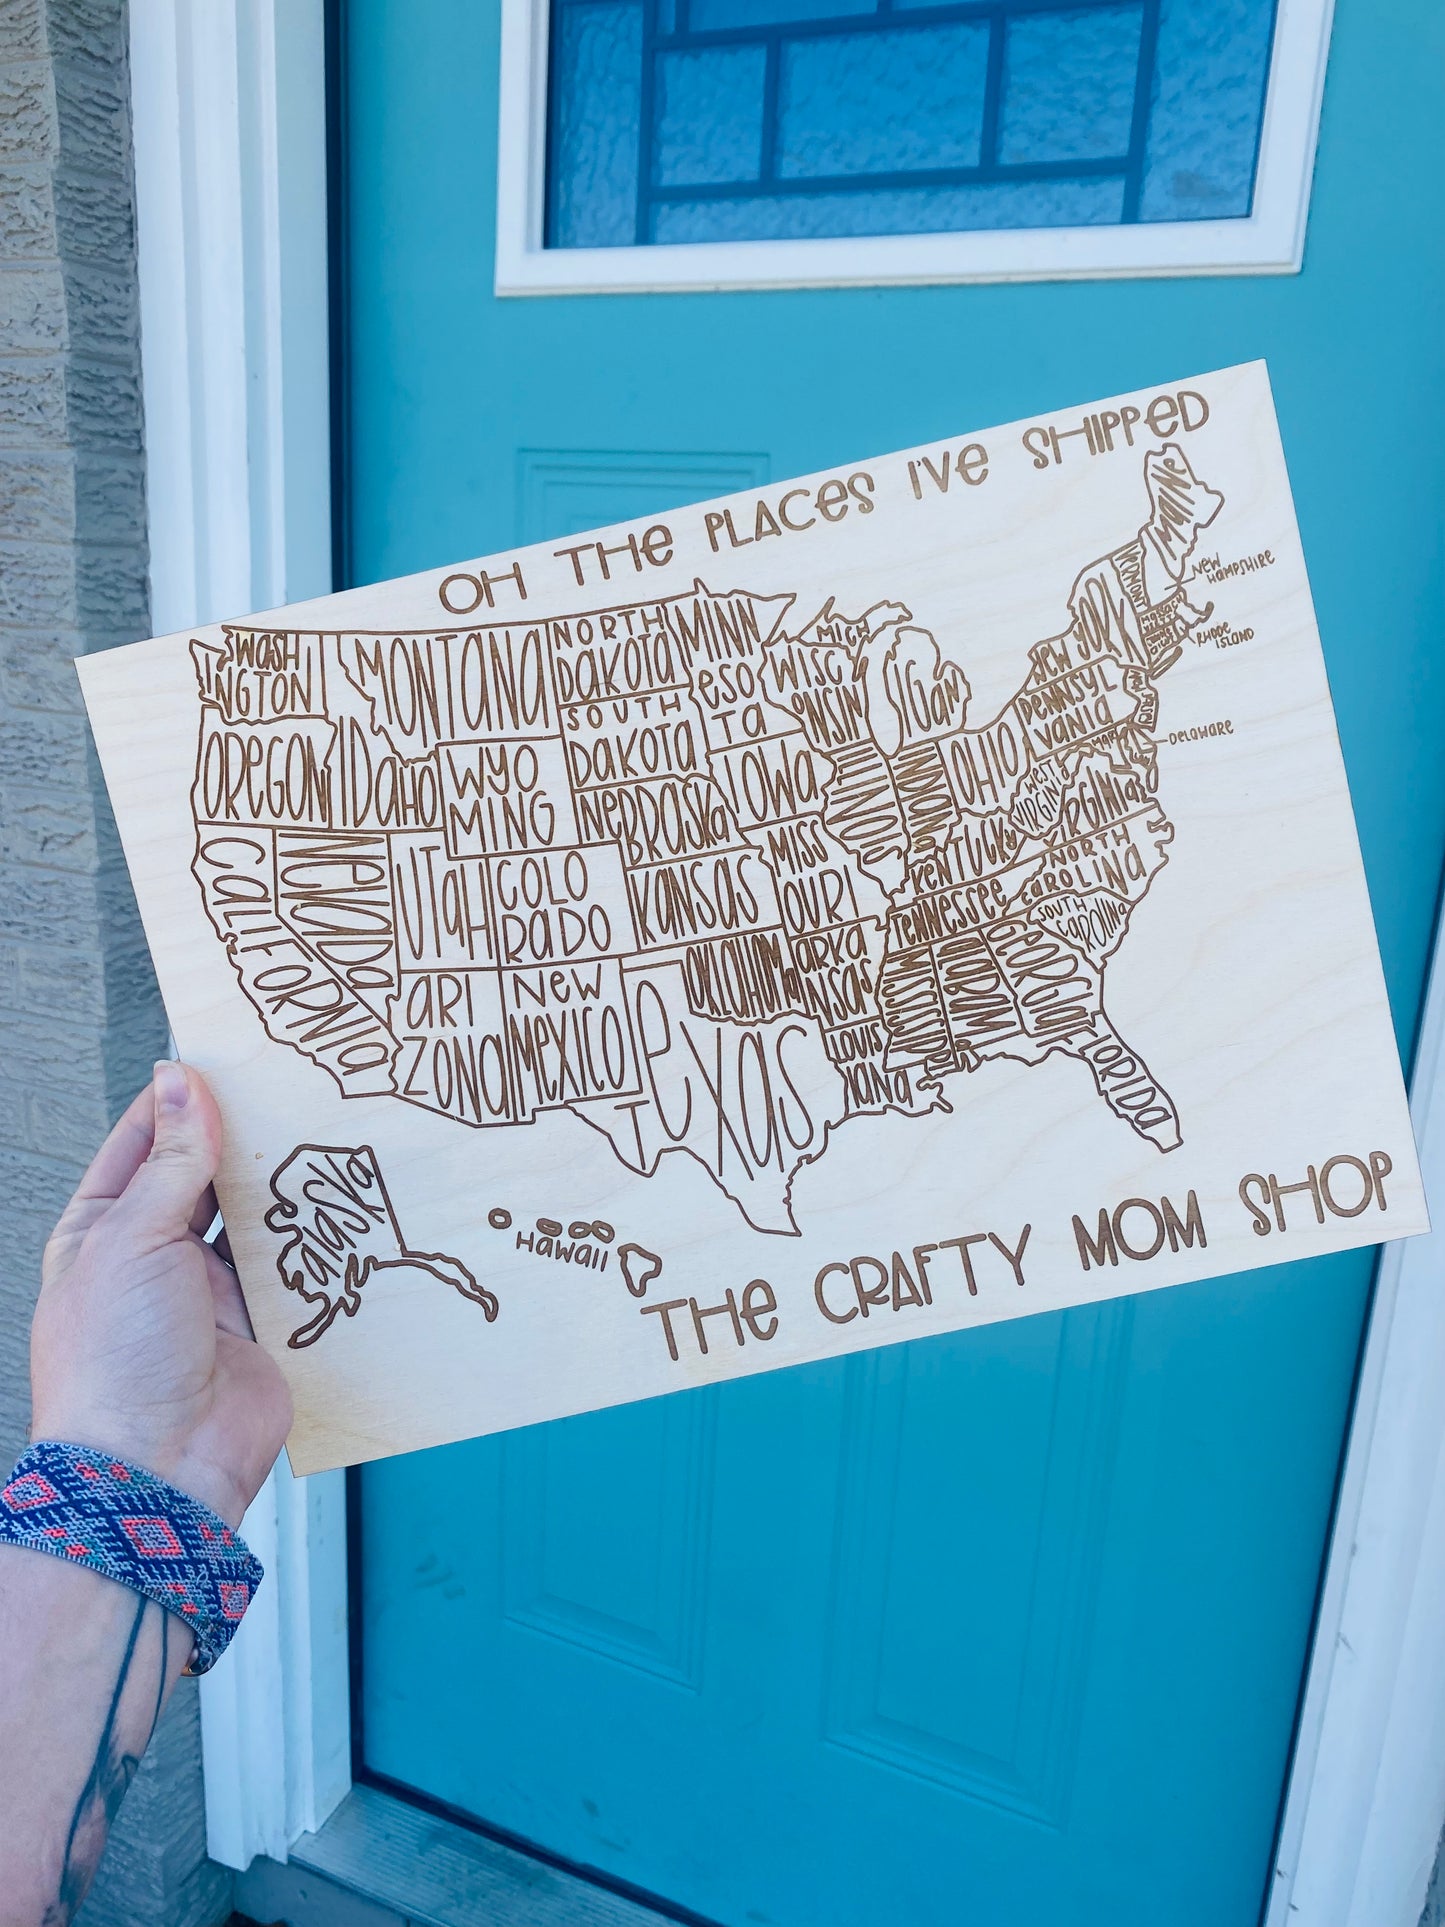 OH THE PLACES I'VE SHIPPED
MAINE
VERMONT
NEW
HAMPSHIRE
RHODE
ISLAND
NEW YORK
WASH
INGTON
MONTANA
NORTH
DAKOTA
MINN
ESO
TA
WISC
ONSIN
MICH
IGAN
PENNSYL
VANIA
DELAWARE
OREGON
IDAHO
WYO
MING
SOUTH
DAKOTA
IOWA
ILLINOIS
INDIANA
OHIO
WEST
VIRGINIA
VIRGINIA
NEBRASKA
CALIFORNIA
NEVADA
UTAH
COLO
RADO
KANSAS
MISS
OURI
KENTUCKY
TENNESSEE
NORTH
CAROLINA
SOUTH
CAROLINA
ARI
ZONA
NEW
MEXICO
OKLAHOMA
ARKA
NSAS
MISSISSIPPI
ALABAMA
GEORGIA
TEXAS
LOUIS
IANA
FLORIDA
ALASKA
HAWAII
THE CRAFTY MOM SHOP